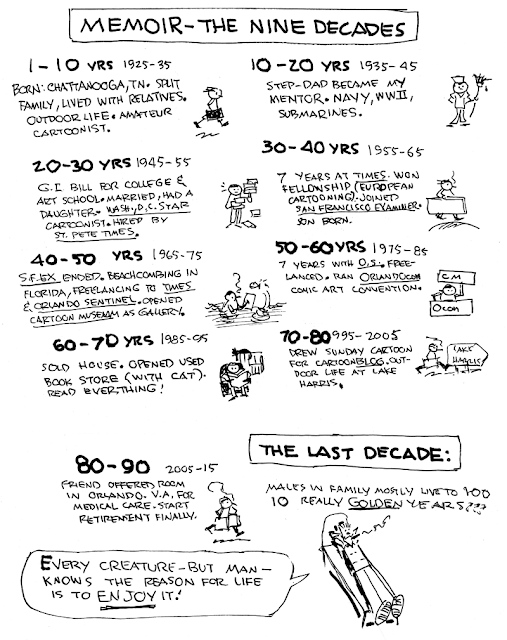 MEMOIR-THE NINE DECADES
1-10 YRS 1925-35
BORN: CHATTANOOGA, TN. SPLIT
FAMILY, LIVED WITH RELATIVES.
OUTDOOR LIFE. AMATEUR
CARTOONIST.
10-20 YRS 1935-45
STEP-DAD BECAME MY
MENTOR. NAVY, WWII,
SUBMARINES.
20-30 YRS 1945-55
G.I. BILL FOR COLLEGE &
ART SCHOOL. MARRIED, HAD A
DAUGHTER. WASH, D.C. STAR
CARTOONIST. HIRED BY
ST. PETE TIMES.
30-40 YRS 1955-65
7 YEARS AT TIMES. WON
FELLOWSHIP (EUROPEAN
CARTOONING). JOINED
SAN FRANCISCO EXAMINER.
SON BORN.
40-50 YRS 1965-75
S.F. EX. ENDED. BEACHCOMBING IN
FLORIDA, FREELANCING TO TIMES
& ORLANDO SENTINEL. OPENED
CARTOON MUSEUM AS GALLERY.
50-60 YRS 1975-85
7 YEARS WITH O.S. FREE-
LANCED. RAN ORLANDOCON
COMIC ART CONVENTION.
C M
OCON
60-70 YRS 1985-95
SOLD HOUSE. OPENED USED
BOOK STORE (WITH CAT).
READ EVERYTHING!
70-80 995-2005
DREW SUNDAY CARTOON
FOR CARTOONBLOG. OUT-
DOOR LIFE AT LAKE
HARRIS.
LAKE
HARRIS
80-90 2005-15
FRIEND OFFERED ROOM
IN ORLANDO. V.A. FOR
MEDICAL CARE. START
RETIREMENT FINALLY.
THE LAST DECADE:
MALES IN FAMILY MOSTLY LIVE TO 100
10 REALLY GOLDEN YEARS???
EVERY CREATURE-BUT MAN-
KNOWS THE REASON FOR LIFE
IS TO ENJOY IT!